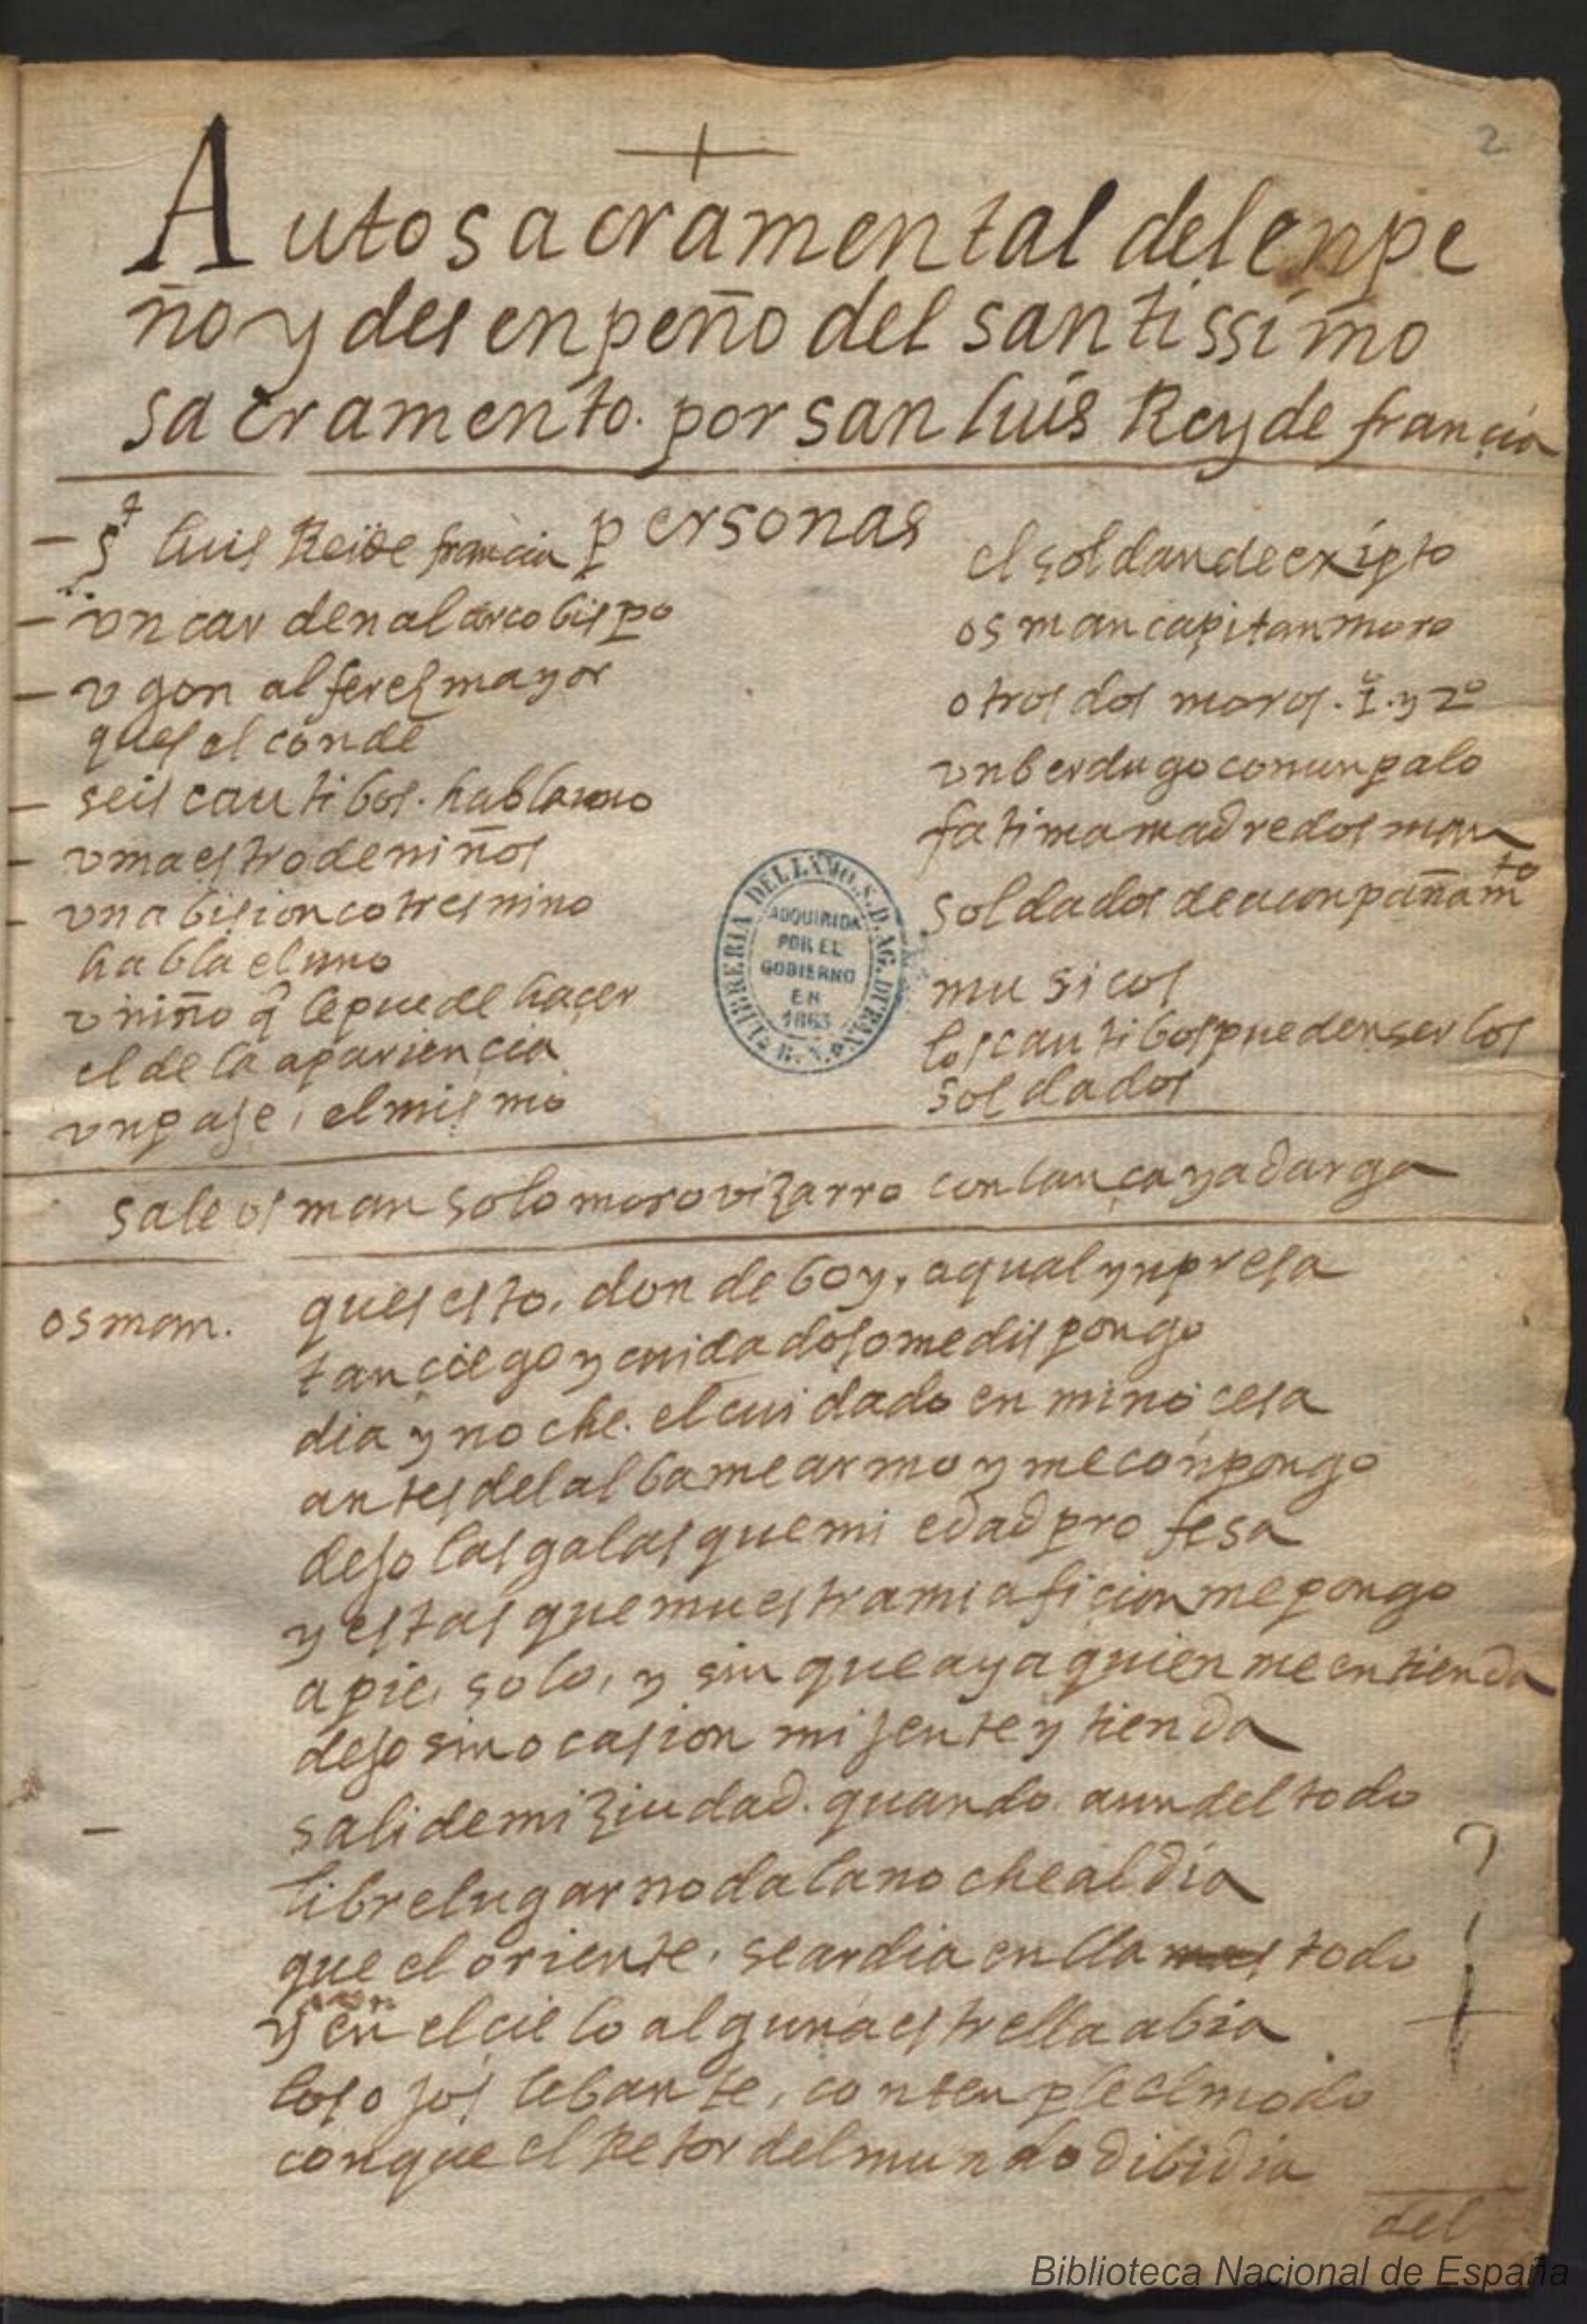 2
+
Auto sacramental del enpe
ño y desenpeño del santissimo
sacramento. por san luis Rey de francia
personas
st luis Rei de francia
un cardenal arcobispo
ugon alferes mayor
ques el conde
seis cautibos. habla uno
u maestro de niños
una bision co tres nino
habla el uno
u niño q̃ le puede haçer
el de la apariencia
un paje, el mismo
el soldan de exipto
osman capitan moro
otros dos moros. 1º. y 2º
un berdugo con un palo
fatima madre dosman
soldados de aconpañamto
musicos
los cautibos pueden ser los
soldados
LIBRERIA DEL EXMO. S. D. AG. DURAN. B. N.
ADQUIRIDA
POR EL
GOBIERNO
EN
1863
sale osman solo moro vizarro con lança y adarga
osman. ques esto, donde boy, a qual ynpresa
tan çiego y cuidadoso me dispongo
dia y noche. el cuidado en mi no cesa
antes del alba me armo y me conpongo
dejo las galas que mi edad profesa
y estas que muestra mi afiçion me pongo
a pie, solo, y sin que aya quien me entienda
dejo sin ocasion mi jente y tienda
sali de mi ziudad. quando aun del todo
libre lugar no da la noche al dia
que el oriente, se ardia en lla todo
y en el cielo alguna estrella abia
los ojos lebante, contenple el modo
con que el Retor del mundo dibidia
del
Biblioteca Nacional de España